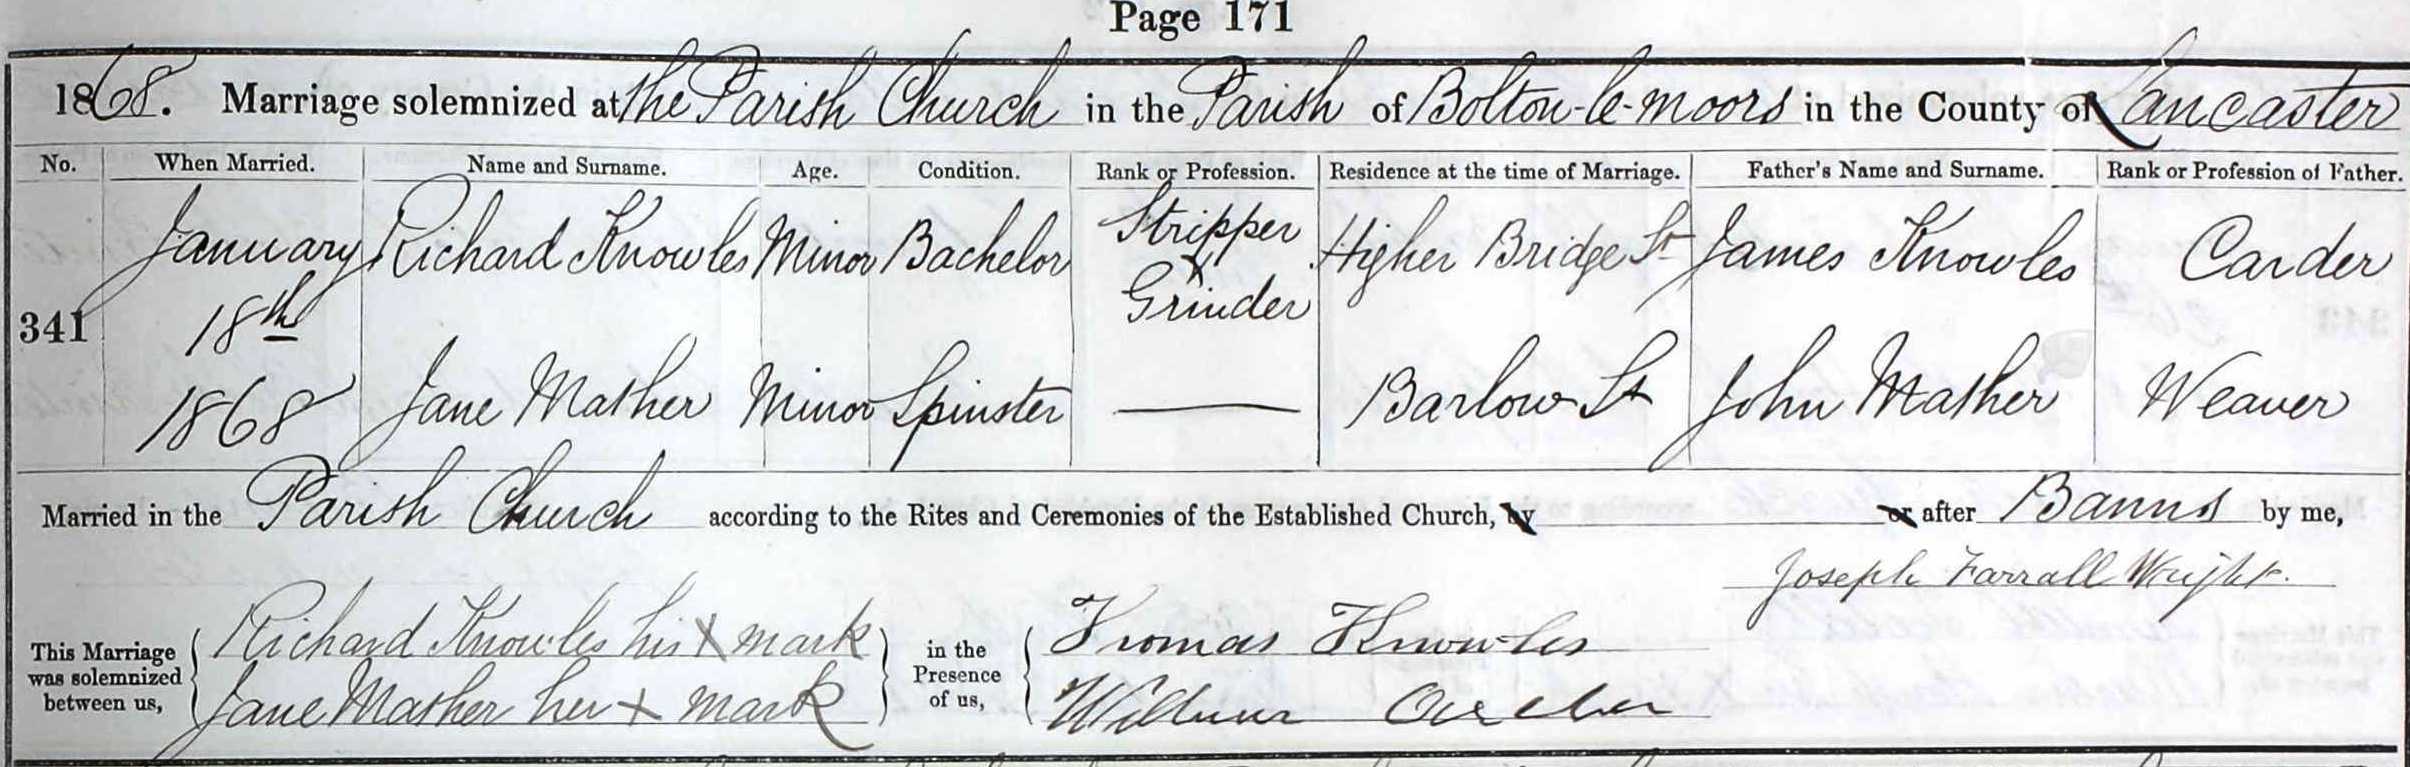 Page 171
1868. Marriage solemnized at the Parish Church in the Parish of Bolton-le-moors in the County of Lancaster
No. When Married. Name and Surname. Age. Condition. Rank or Profession. Residence at the time of Marriage. Father's Name and Surname. Rank or Profession of Father.
341 January 18th 1868 Richard Knowles Minor Bachelor Stripper & Grinder Higher Bridge St James Knowles Carder
Jane Mather Minor Spinster — Barlow St John Mather Weaver
Married in the Parish Church according to the Rites and Ceremonies of the Established Church, by or after Banns by me,
Joseph Farrall Wright.
This Marriage was solemnized between us, Richard Knowles his X mark in the Presence of us, Thomas Knowles
Jane Mather her X mark William